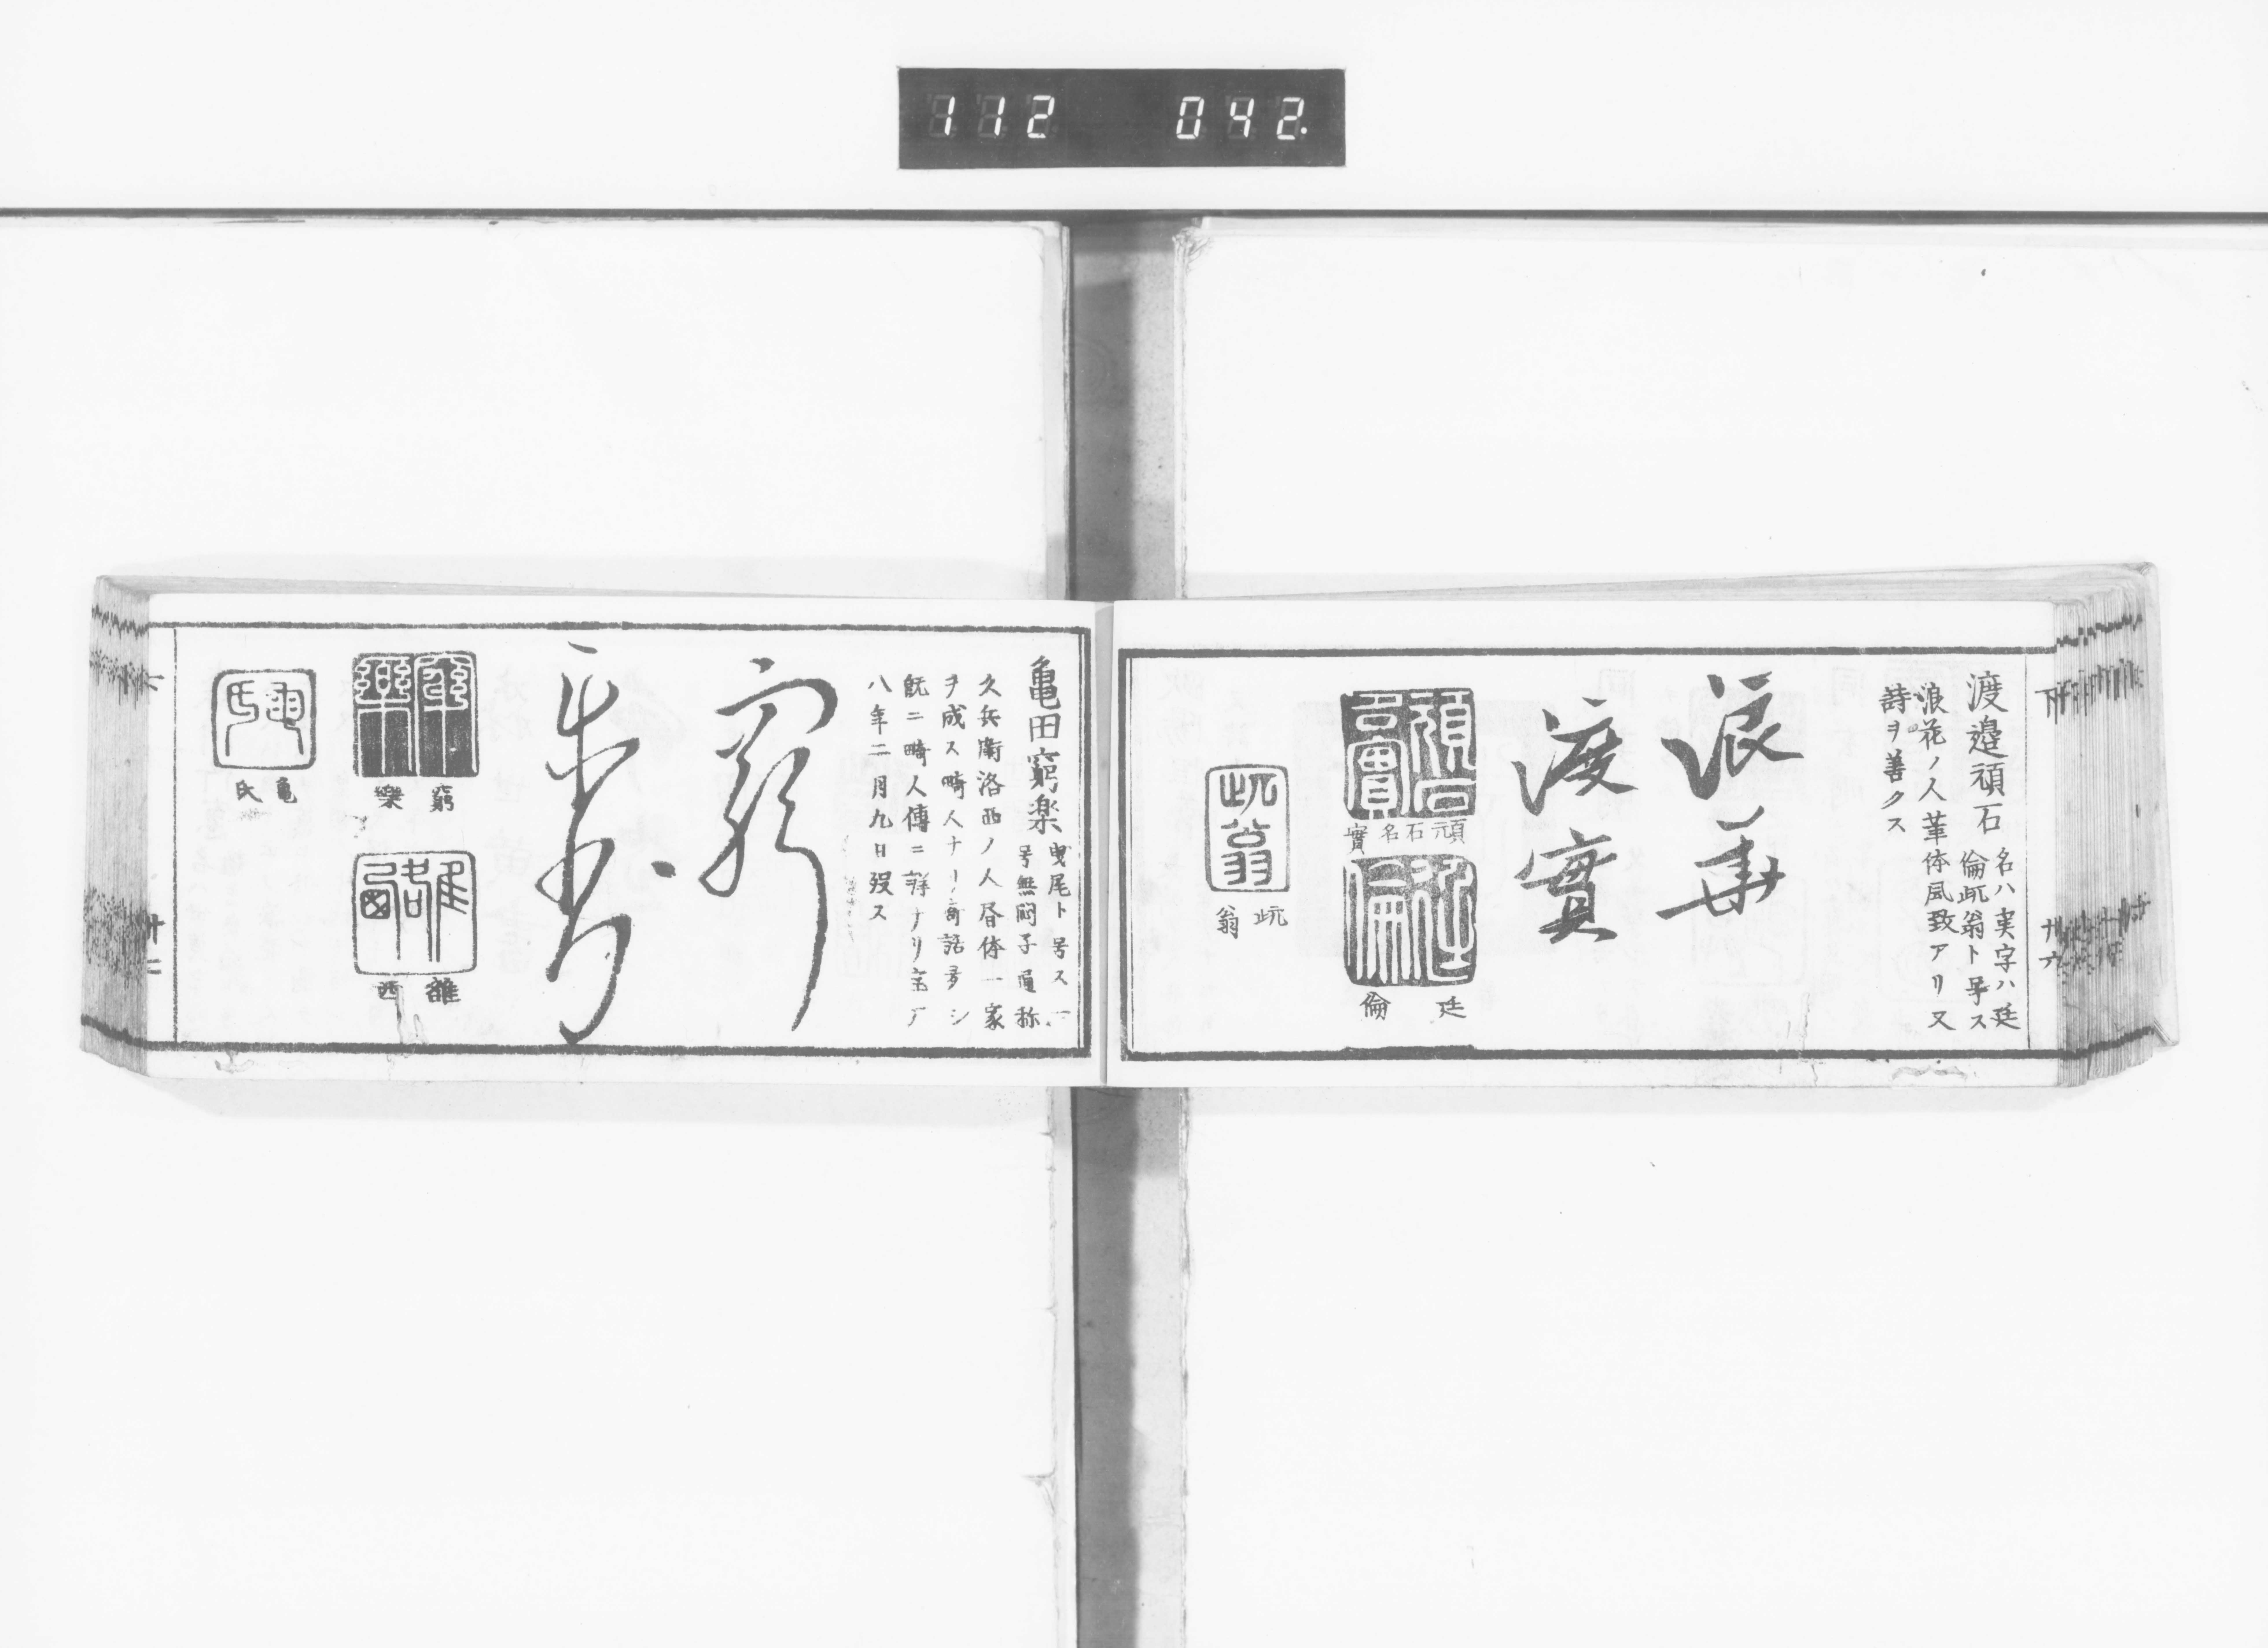 112 042.
渡邉頑石
名ハ実字ハ廷
倫㽱翁ト号ス
浪花ノ人筆体風致アリ又
詩ヲ善クス
浪華
渡實
頑石名實
廷倫
翁
亀田窮楽
曳尾ト号ス一
号無悶子通称
久兵衛洛西ノ人唇体一家
ヲ成ス畸人ナリ奇話多シ
既ニ畸人傳ニ詳ナリ宝
八年二月九日歿ス
窮
樂書
窮樂
雒西
亀氏